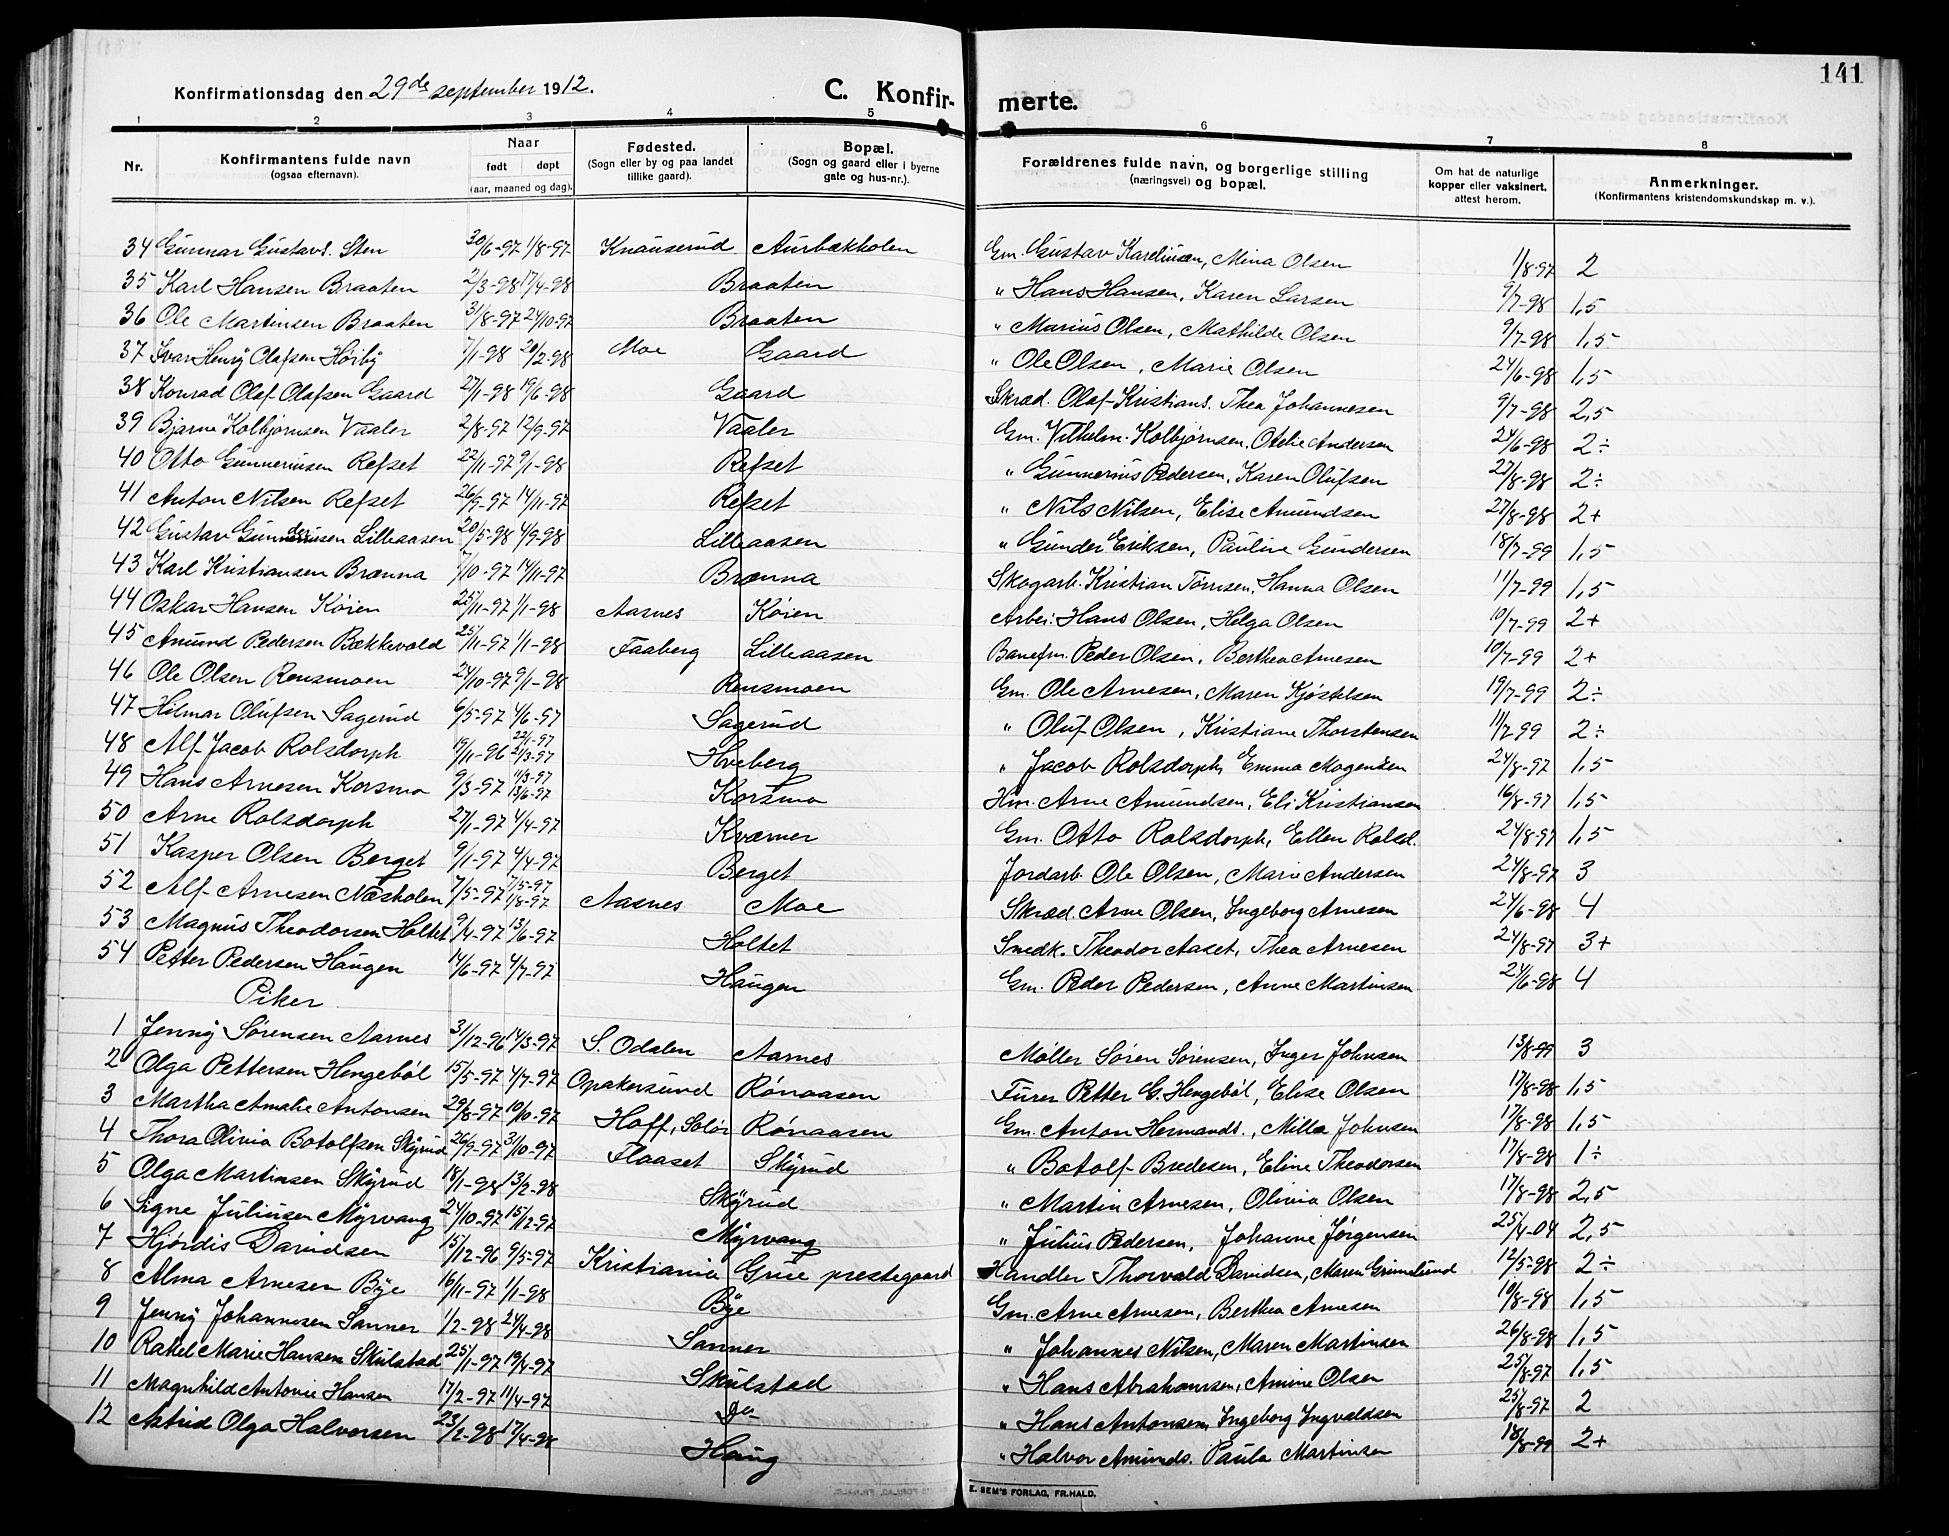 Konfirmationsdag den 29de september 1912.
C. Konfir-
merte.
141
1 2 3 4 5 6 7 8
Nr. Konfirmantens fulde navn (ogsaa efternavn). Naar født døpt (aar, maaned og dag). Fødested. (Sogn eller by og paa landet tillike gaard). Bopæl. (Sogn og gaard eller i byerne gate og hus-nr.). Forældrenes fulde navn, og borgerlige stilling (næringsvei) og bopæl. Om hat de naturlige kopper eller vaksinert, attest herom. Anmerkninger. (Konfirmantens kristendomskundskap m. v.).
34 Gunnar Gustavs. Sten 30/6-97 1/8-97 Knauserud Aurbækholen Gm. Gustav Karelinsen, Mina Olsen 1/8-97 2
35 Karl Hansen Braaten 2/3-98 17/4-98 Braaten " Hans Hansen, Karen Larsen 9/7-98 1,5
36 Ole Martinsen Braaten 31/8-97 24/10-97 Braaten " Marius Olsen, Mathilde Olsen 9/7-98 1,5
37 Ivar Henry Olafsen Høiby 7/1-98 20/2-98 Moe Gaard " Ole Olsen, Marie Olsen 24/6-98 1,5
38 Konrad Olaf Olafsen Gaard 27/1-98 19/6-98 Gaard Skræd. Olaf Kristians. Thea Johannesen 9/7-98 2,5
39 Bjarne Kolbjørnsen Vaaler 2/8-97 12/9-97 Vaaler Gm. Vilhelm Kolbjørnsen, Otelie Andersen 24/6-98 2÷
40 Otto Gunneriusen Refset 22/11-97 9/1-98 Refset " Gunnerius Pedersen, Karen Olufsen 27/8-98 2÷
41 Anton Nilsen Refset 26/9-97 14/11-97 Refset " Nils Nilsen, Elise Amundsen 27/8-98 2+
42 Gustav Gundersen Lilleaasen 20/5-98 4/9-98 Lilleaasen " Gunder Eriksen, Pauline Gundersen 18/7-99 1,5
43 Karl Kristiansen Brænna 7/10-97 14/11-97 Brænna Skogarb. Kristian Tørrisen, Hanna Olsen 11/7-99 1,5
44 Oskar Hansen Køien 25/11-97 1/1-98 Aasnes Køien Arbei: Hans Olsen, Helga Olsen 10/7-99 2+
45 Amund Pedersen Bækkevold 25/11-97 1/1-98 Faaberg Lilleaasen Banefm. Peder Olsen, Berthea Arnesen 10/7-99 2+
46 Ole Olsen Rensmoen 24/10-97 9/1-98 Rensmoen Gm. Ole Arnesen, Maren Kjøstelsen 19/7-99 2÷
47 Hilmar Olufsen Sagerud 6/5-97 4/6-97 Sagerud " Oluf Olsen, Kristiane Thorstensen 11/7-99 2÷
48 Alf Jacob Rolsdorph 19/11-96 22/1-97 21/3-97 Hveberg " Jacob Rolsdorph, Emma Mogensen 24/8-97 1,5
49 Hans Arnesen Korsmo 9/3-97 11/3-97 13/6-97 Korsmo Hm. Arne Amundsen, Eli Kristiansen 16/8-97 1,5
50 Arne Rolsdorph 27/1-97 4/4-97 Kværner Gm. Otto Rolsdorph, Ellen Rolsd. 24/8-97 1,5
51 Kasper Olsen Berget 9/1-97 4/4-97 Berget Jordarb. Ole Olsen, Marie Andersen 24/8-97 3
52 Alf Arnesen Næsholen 7/5-97 7/5-97 1/8-97 Aasnes Moe Skræd. Arne Olsen, Ingeborg Arnesen 24/6-98 4
53 Magnus Theodorsen Holtet 9/4-97 13/6-97 Holtet Smedk. Theodor Aaset, Thea Arnesen 24/8-97 3+
54 Petter Pedersen Haugen 14/6-97 4/7-97 Haugen Gm. Peder Pedersen, Anne Martinsen 24/6-98 4
Piker
1 Jenny Sørensen Aarnes 31/12-96 14/3-97 S. Odalen Aarnes Møller Søren Sørensen, Inger Johnsen 13/8-99 3
2 Olga Pettersen Hengebøl 15/5-97 4/7-97 Opakersund Rønaasen Furer Petter G. Hengebøl, Elise Olsen 17/8-98 1,5
3 Martha Amalie Antonsen 29/8-97 10/10-97 Hoff, Solør Rønaasen Gm. Anton Hermands., Milla Johnsen 17/8-98 1,5
4 Thora Olivia Botolfsen Skyrud 26/9-97 31/10-97 Flaaset Skyrud " Botolf Bredesen, Eline Theodorsen 17/8-98 1÷
5 Olga Martinsen Skyrud 18/1-98 13/2-98 Skyrud " Martin Arnesen, Olivia Olsen 17/8-98 2,5
6 Signe Juliusen Myrvang 24/10-97 15/12-97 Myrvang " Julius Pedersen, Johanne Jørgensen 25/4-04 2,5
7 Hjørdis Davidsen 15/12-96 9/5-97 Kristiania Grue prestegaard Handler Thorvald Davidsen, Maren Grimslund 12/5-98 2÷
8 Alma Arnesen Bye 16/11-97 1/1-98 Bye Gm. Arne Arnesen, Berthea Arnesen 10/8-98 1,5
9 Jenny Johannesen Sanner 1/2-98 24/4-98 Sanner " Johannes Nilsen, Maren Martinsen 26/8-98 1,5
10 Rakel Marie Hansen Skulstad 25/1-97 19/4-97 Skulstad " Hans Abrahamsen, Amine Olsen 25/8-97 1,5
11 Magnhild Antonie Hansen 17/2-97 11/4-97 Do " Hans Antonsen, Ingeborg Ingvaldsen 25/8-97 2
12 Astrid Olga Halvorsen 23/2-98 17/4-98 Haug " Halvor Amunds. Paula Martinsen 18/8-99 2+
E. SEM'S FORLAG, FR.HALD.